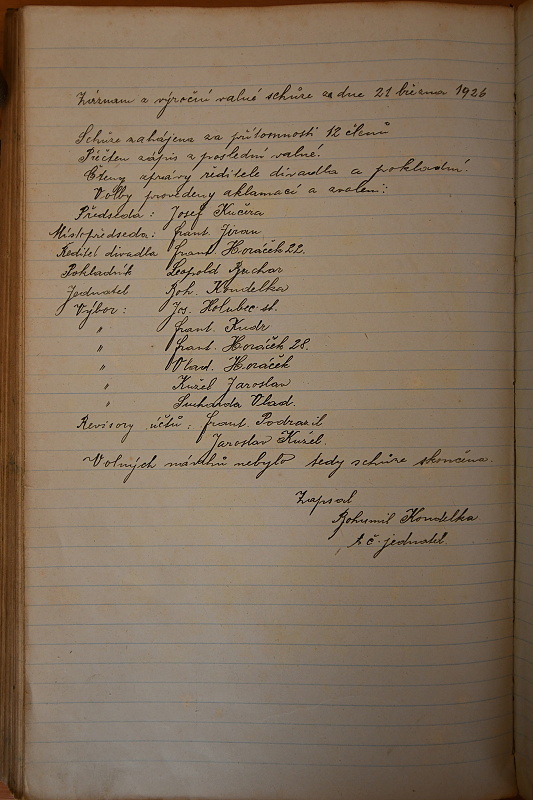 Záznam z výroční valné schůze ze dne 21 března 1926
Schůze zahájena za přítomnosti 12 členů
Přečten zápis z poslední valné.
Čteny zprávy ředitele divadla a pokladní.
Volby provedeny aklamací a zvoleni:
Předseda: Josef Kučera
Místopředseda: Frant. Jiran.
Ředitel divadla Frant. Horáček 22.
Pokladník Leopold Buchar
Jednatel Boh. Kondelka
Výbor: Jos. Holubec st.
" Frant. Kudr
" Frant. Horáček 28.
" Vlad. Horáček
" Kužel Jaroslav
" Sucharda Vlad.
Revisory účtů: Frant. Podrazil
Jaroslav Kužel.
Volných návrhů nebylo tedy schůze skončena.
Zapsal
Bohumil Kondelka
t. č. jednatel